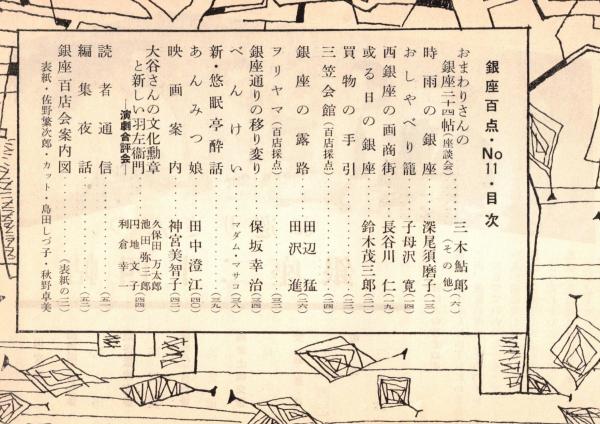 銀座百点・No11・目次
おまわりさんの
銀座三十四帖(座談会)……三木鮎郎(その他)(六)
時雨の銀座……深尾須磨子(一三)
おしゃべり籠……子母沢寛(一四)
西銀座の画商街……長谷川仁(一九)
或る日の銀座……鈴木茂三郎(二二)
買物の手引……
三笠会館(百店採点)……(二四)
銀座の露路……田辺猛 田沢進(二六)
ヲリヤマ(百店採点)……
銀座通りの移り変り……保坂幸治(三四)
べんけい……マダム・マサコ(三八)
新・悠眠亭酔話……(三九)
あんみつ娘……田中澄江(四〇)
映画案内……神宮美智子(四二)
大谷さんの文化勲章
と新しい羽左衛門
―演劇合評会―
久保田万太郎
池田弥三郎
円地文子
利倉幸一(四四)
読者通信……(五一)
編集夜話……(五二)
銀座百店会案内図……(表紙の二)
表紙・佐野繁次郎・カット・島田しづ子・秋野卓美